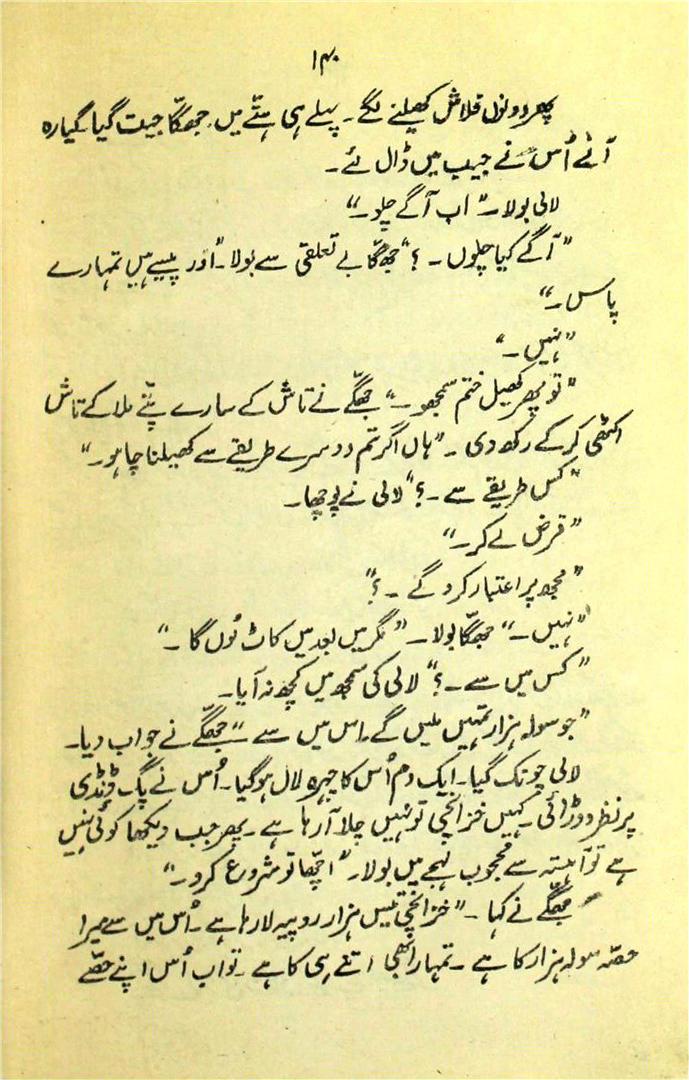 ۱۴۰
پھر دونوں فلاش کھیلنے لگے۔ پہلے ہی ہتّے میں جھگّا جیت گیا۔ گیارہ
آنے اُس نے جیب میں ڈال لئے۔
لالی بولا۔ "اب آگے چلو۔"
"آگے کیا چلوں۔؟" جھگّا بے تعلقی سے بولا۔ "اور پیسے ہیں تمہارے
پاس۔"
"نہیں۔"
"تو پھر کھیل ختم سمجھو۔" جھگّے نے تاش کے سارے پتّے ملا کے تاش
اکٹھی کر کے رکھ دی۔ "ہاں اگر تم دوسرے طریقے سے کھیلنا چاہو۔"
"کس طریقے سے۔؟" لالی نے پوچھا۔
"قرض لے کر۔"
"مجھ پر اعتبار کرو گے۔؟"
"نہیں۔" جھگّا بولا۔ "مگر میں بعد میں کاٹ لُوں گا۔"
"کس میں سے۔؟" لالی کی سمجھ میں کچھ نہ آیا۔
"جو سولہ ہزار تمہیں ملیں گے۔ اس میں سے" جھگّے نے جواب دیا۔
لالی چونک گیا۔ ایک دم اُس کا چہرہ لال ہو گیا۔ اُس نے پگ ڈنڈی
پر نظر دوڑائی۔ کہیں خزانچی تو نہیں چلا آ رہا ہے۔ پھر جب دیکھا کوئی نہیں
ہے تو آہستہ سے محجوب لہجے میں بولا۔ "اچّھا تو شروع کرو۔"
جھگّے نے کہا۔ "خزانچی تیس ہزار روپیہ لا رہا ہے۔ اُس میں سے میرا
حصّہ سولہ ہزار کا ہے۔ تمہارا بھی اتنے ہی کا ہے۔ تو اب اُس اپنے حصّے